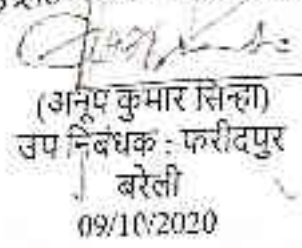 (अनूप कुमार सिन्हा)
उप निबंधक : फरीदपुर
बरेली
09/10/2020